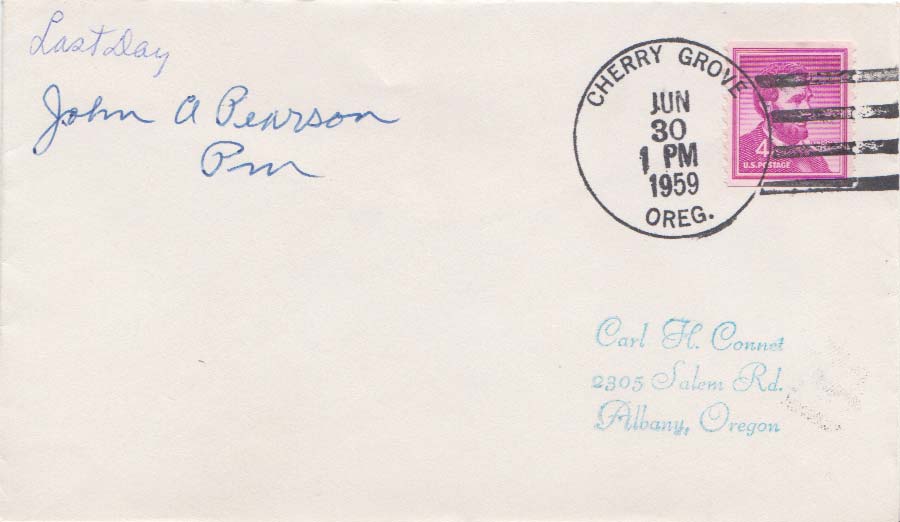 Last Day
John A Pearson
Pm
CHERRY GROVE
JUN
30
1 PM
1959
OREG.
4
U.S. POSTAGE
Carl H. Connet
2305 Salem Rd.
Albany, Oregon